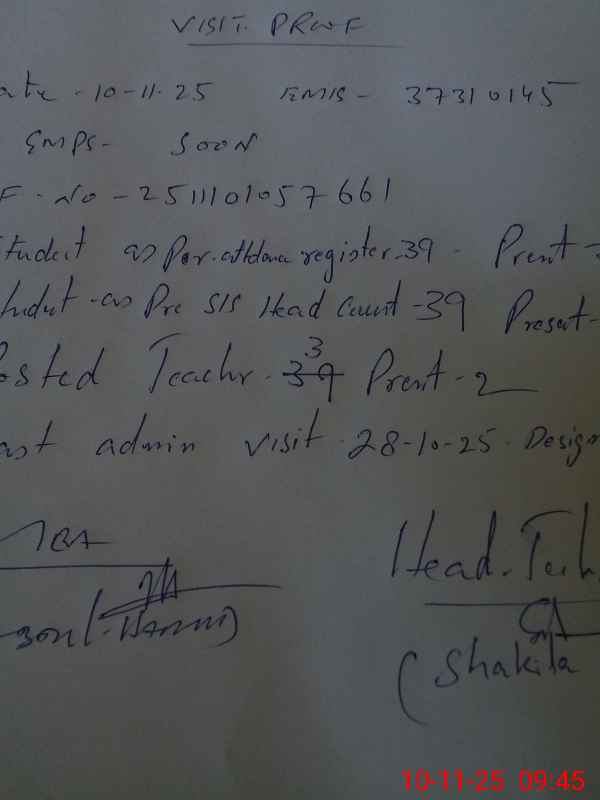 VISIT. PROOF
ate - 10-11-25 EMIS - 37310145
GMPS - SOON
F. No - 2511101057661
tudent as Per. attdance register - 39 - Prent =
tudent - as Pre SIS Head Count - 39 Present -
osted Teachr - 39 3 Prent - 2
ast admin visit - 28-10-25 - Design
Head. Tech
(Shakila
10-11-25 09:45